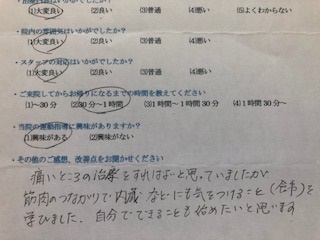 (1)大変良い (2)良い (3)普通 (4)悪い (5)よくわからない
・院内の雰囲気はいかがでしたか？
(1)大変良い (2)良い (3)普通 (4)悪い
・スタッフの対応はいかがでしたか？
(1)大変良い (2)良い (3)普通 (4)悪い
・ご来院してからお帰りになるまでの時間を教えてください
(1)～30分 (2)30分～1時間 (3)1時間～1時間30分 (4)1時間30分
・当院の運動指導に興味がありますか？
(1)興味がある (2)興味がない
・その他のご感想、改善点をお聞かせください
痛いところの治療をすればよいと思っていましたが
筋肉のつながりで内蔵などにも気をつけること(食事)を
学びました。自分でできることも始めたいと思います